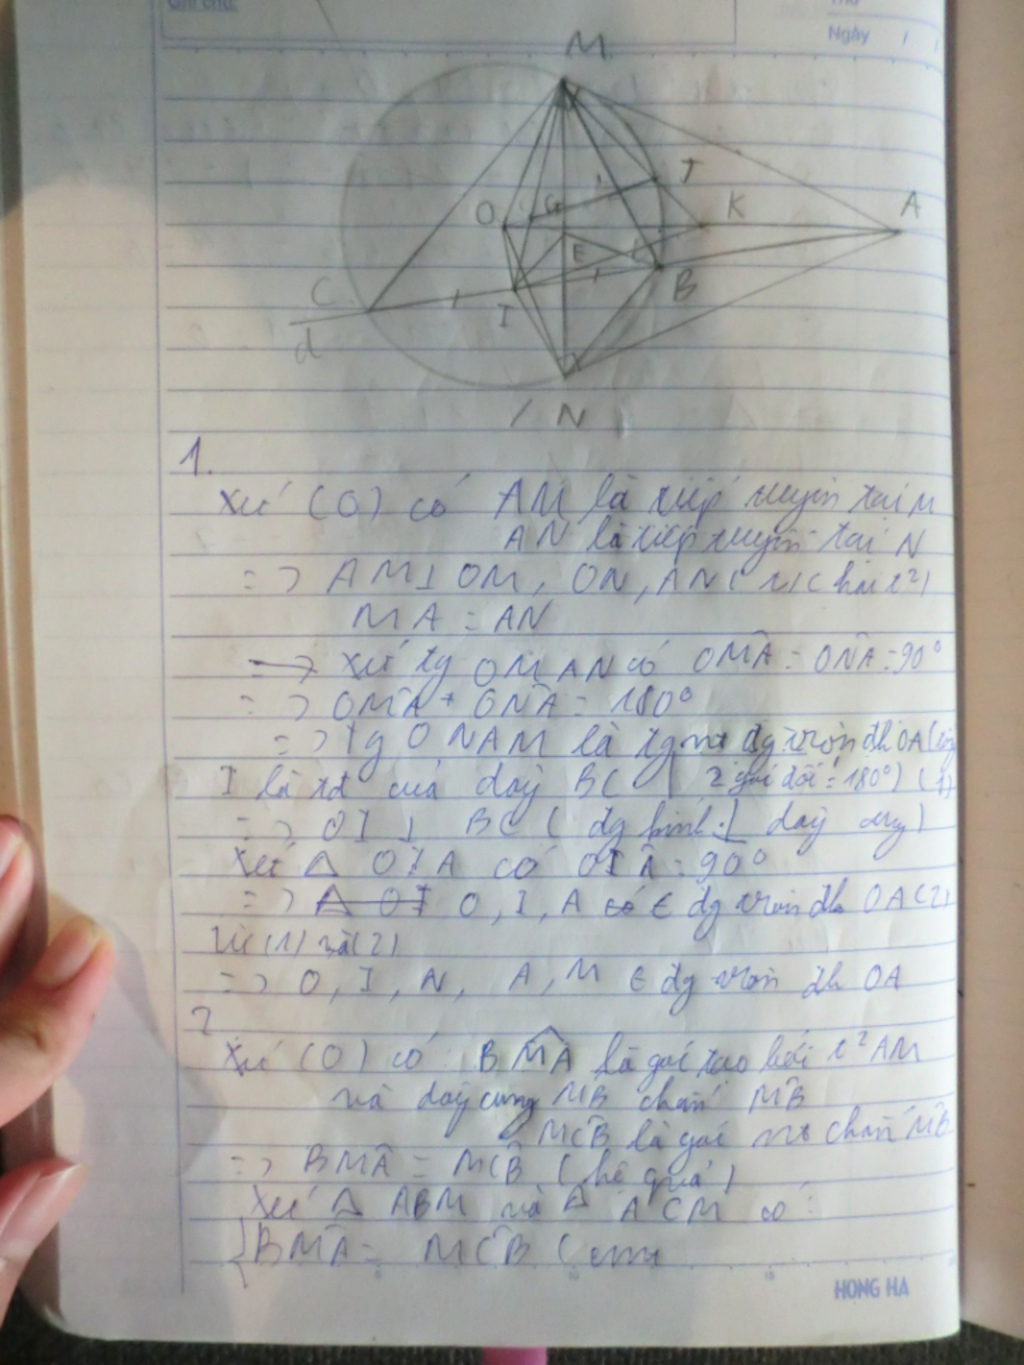 Ghi chú:
Thứ
Ngày / /
M
T
O
G
K
A
E
L
C
B
I
d
N
1.
Xét (O) có AM là tiếp tuyến tại M
AN là tiếp tuyến tại N
=> AM ⊥ OM, ON, AN ( t/c hai t²)
MA = AN
Xét tg OMAN có OMA = ONA = 90°
=> OMA + ONA = 180°
=> tg ONAM là tg nt đg tròn đk OA
I là tđ của dây BC 2 góc đối = 180°) (1)
=> OI ⊥ BC ( đg kính ⊥ dây cung)
Xét Δ OIA có OIA = 90°
=> Δ OI O, I, A có ∈ đg tròn đk OA (2)
Từ (1) và (2)
=> O, I, N, A, M ∈ đg tròn đk OA
2
Xét (O) có : BMA là góc tạo bởi t² AM
và dây cung MB chắn MB
MCB là góc nt chắn MB
=> BMA = MCB ( hệ quả )
Xét Δ ABM và Δ ACM có :
BMA = MCB ( cmt
HONG HA